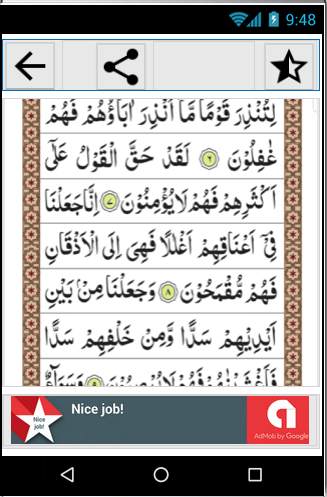 9:48
لِتُنْذِرَ قَوْمًا مَّاۤ اُنْذِرَ اٰبَآؤُهُمْ فَهُمْ
غٰفِلُوْنَ ﴿۶﴾ لَقَدْ حَقَّ الْقَوْلُ عَلٰۤى
اَكْثَرِهِمْ فَهُمْ لَا يُؤْمِنُوْنَ ﴿۷﴾ اِنَّا جَعَلْنَا
فِيْۤ اَعْنَاقِهِمْ اَغْلٰلًا فَهِيَ اِلَى الْاَذْقَانِ
فَهُمْ مُّقْمَحُوْنَ ﴿۸﴾ وَجَعَلْنَا مِنْۢ بَيْنِ
اَيْدِيْهِمْ سَدًّا وَّمِنْ خَلْفِهِمْ سَدًّا
فَاَغْشَيْنٰهُمْ فَهُمْ لَا يُبْصِرُوْنَ ﴿۹﴾ وَسَوَآءٌ
Nice job!
Nice job!
AdMob by Google